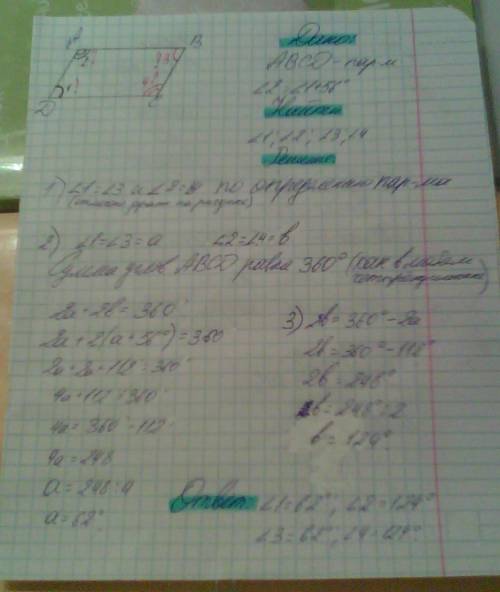 B
D
Дано:
ABCD - пар-м
∠2 = ∠1+56°
Найти:
∠1; ∠2; ∠3, ∠4
Решение:
1) ∠1=∠3 и ∠2= по определению пар-ма
2) ∠1=∠3=a ∠2=∠4=b
Сумма углов ABCD равна 360° (как в любом
четырёхугольнике)
2a+2b=360°
2a+2(a+56°)=360
2a+2a+112=360°
4a+112=360°
4a=360-112
4a=248
a=248:4
a=62°
3) 2b=360°-2a
2b=360°-112°
2b=248°
b=248:2
b=124°
Ответ: ∠1=62°; ∠2=124°
∠3=62°; ∠4=124°